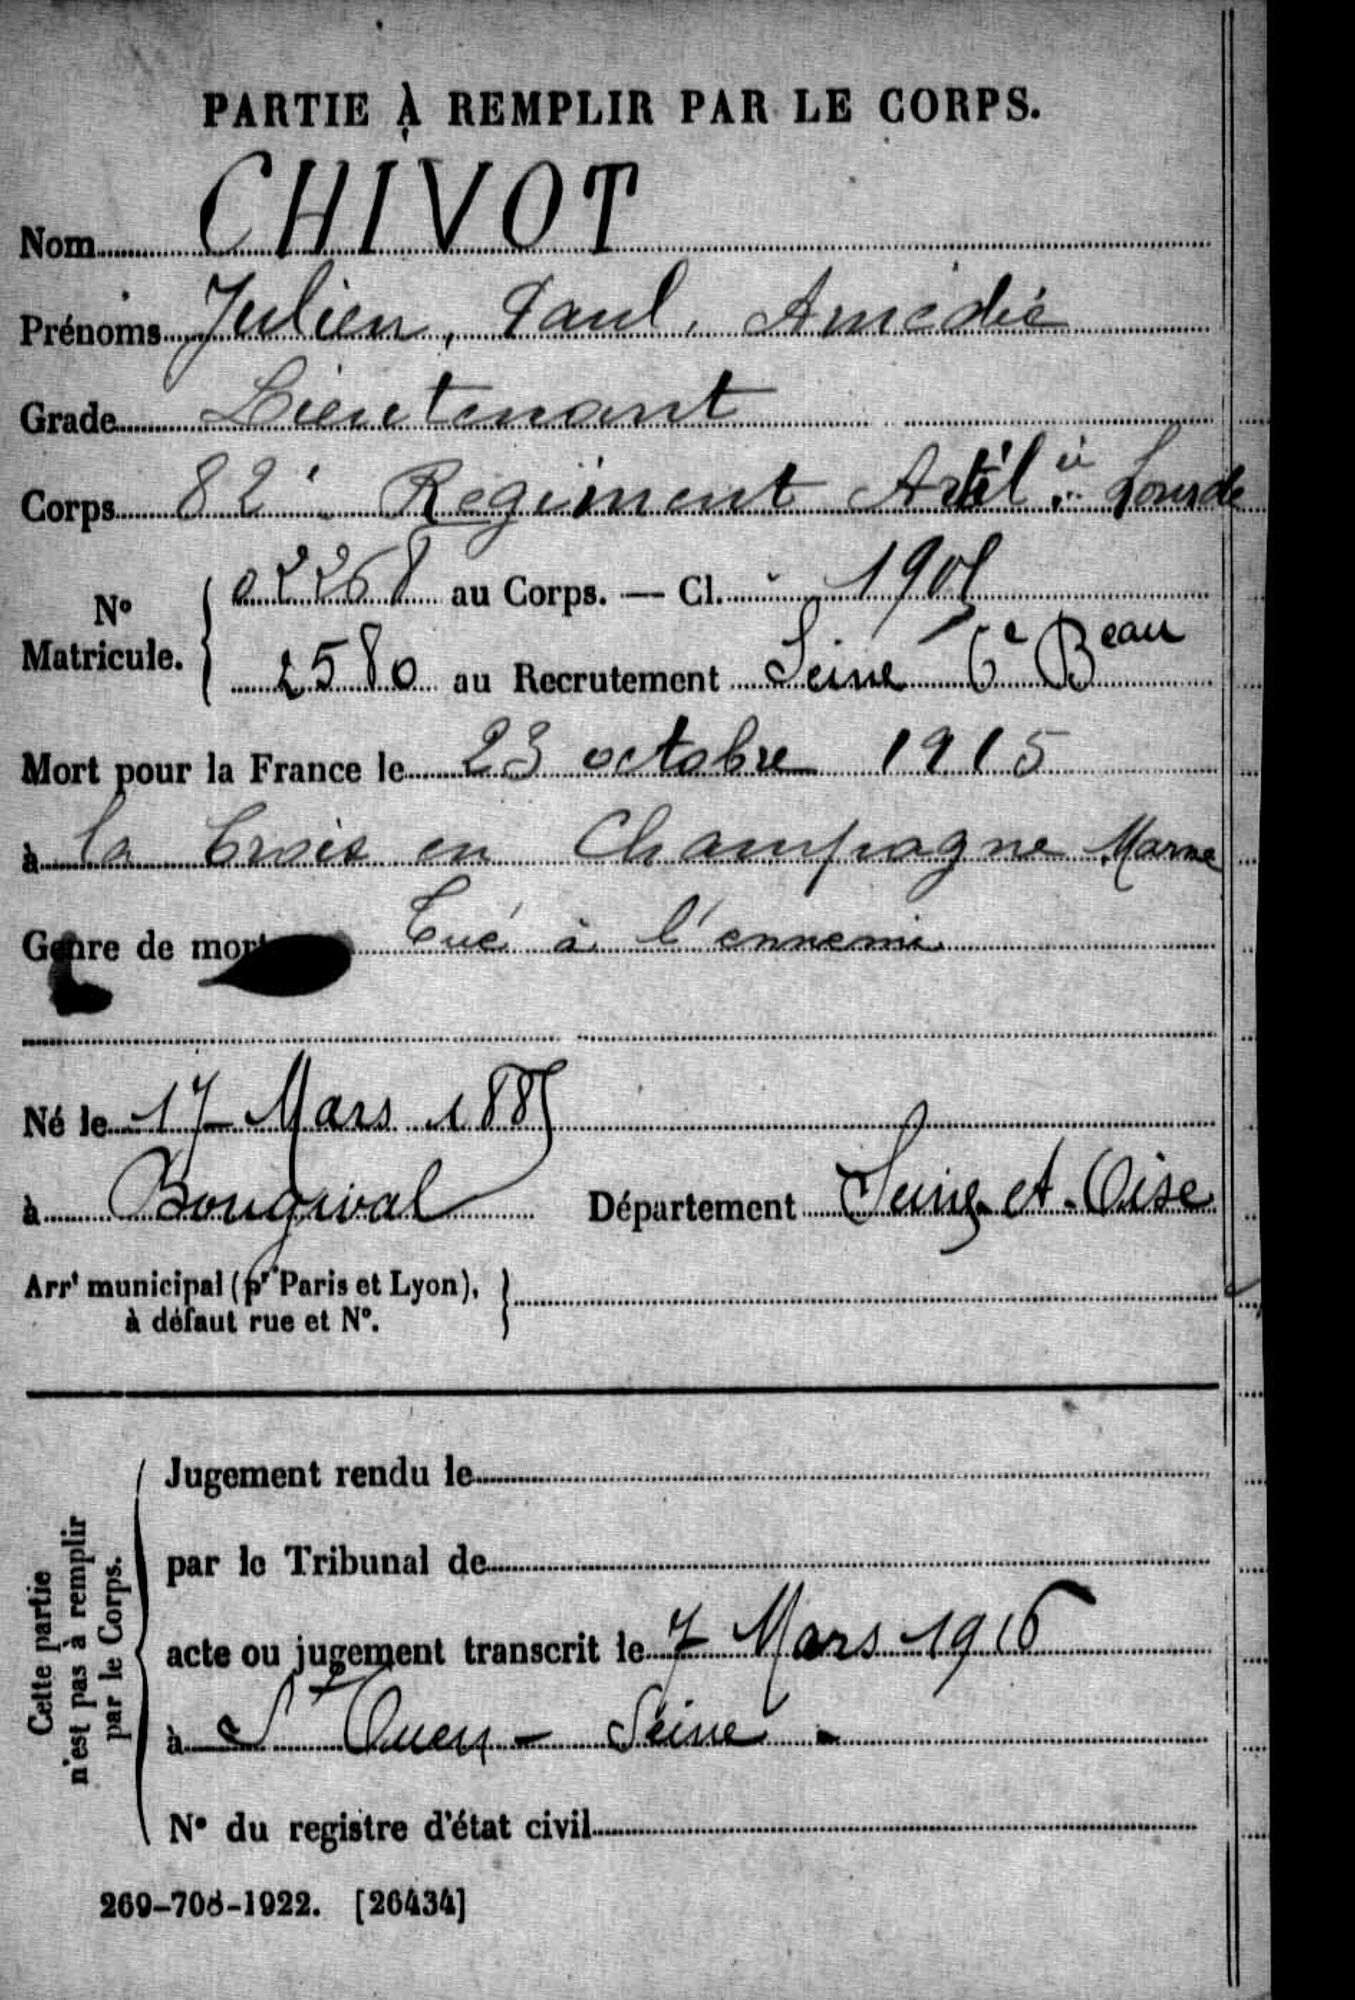 PARTIE À REMPLIR PAR LE CORPS.
Nom CHIVOT
Prénoms Julien, Paul, Amédée
Grade Lieutenant
Corps 82e Régiment Artilie Lourde
No Matricule. 02268 au Corps. — Cl. 1905
2580 au Recrutement Seine 6e Beau
Mort pour la France le 23 octobre 1915
à la Croix en Champagne Marne
Genre de mort Tué à l'ennemi
Né le 17 Mars 1885
à Bougival Département Seine-et-Oise
Arrt municipal (pr Paris et Lyon),
à défaut rue et No.
Cette partie
n'est pas à remplir
par le Corps.
Jugement rendu le
par le Tribunal de
acte ou jugement transcrit le 7 Mars 1916
à St Ouen - Seine -
No du registre d'état civil
269-708-1922. [26434]